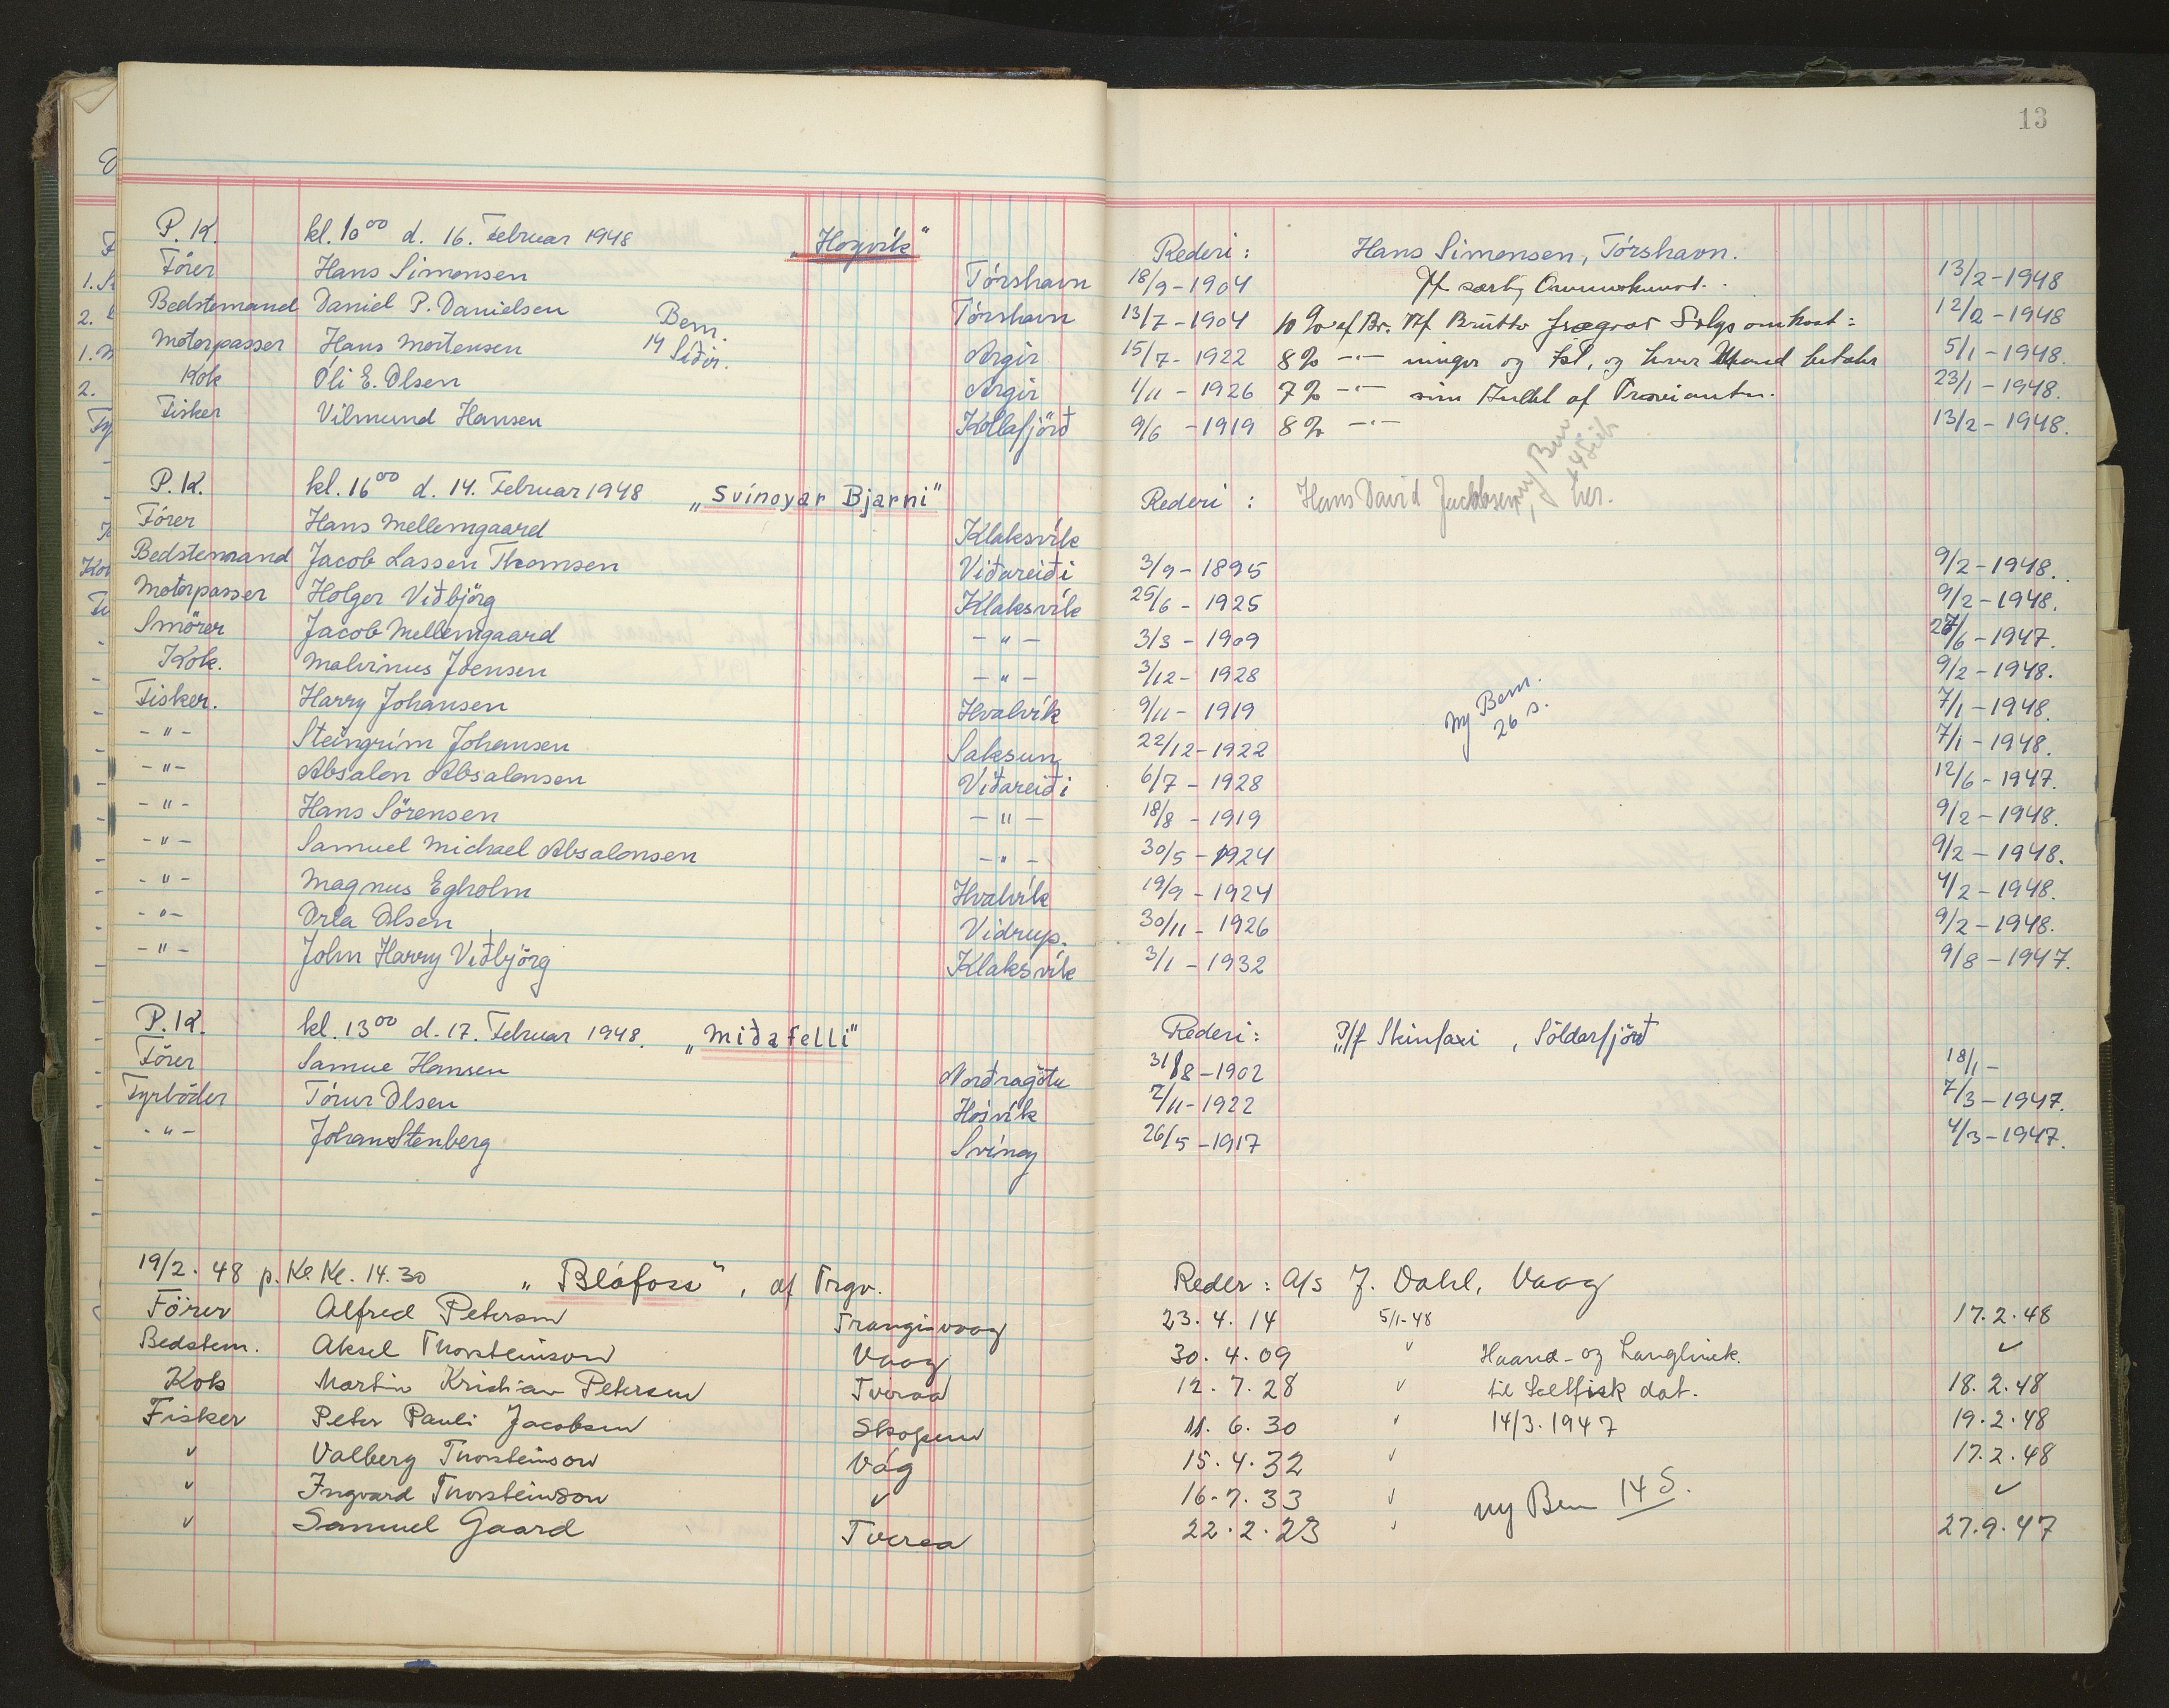 13
P. K. kl. 10⁰⁰ d. 16. Februar 1948 „Hoyvík" Rederi : Hans Simonsen, Tórshavn.
Förer Hans Simonsen Tórshavn 18/9 - 1904 13/2 - 1948
Bedstemand Daniel P. Danielsen Bem. Tórshavn 13/7 - 1904 10 % af Br. Af Brutto fragaar Salgsomkost= 12/2 - 1948
Motorpasser Hans Mortensen 14 Síðir. Argir 15/7 - 1922 8 % -"- ninger og Is, og hver Mand betaler 5/1 - 1948.
Kok Óli E. Olsen Argir 1/11 - 1926 7 % -"- sin Andel af Provianten. 23/1 - 1948.
Fisker Vilmund Hansen Kollafjörð 9/6 - 1919 8 % -"- 13/2 - 1948.
P. K. kl. 16⁰⁰ d. 14. Februar 1948 „Svínoyar Bjarni" Rederi : Hans David Jacobsen, her.
ny Bem
Förer Hans Mellemgaard Klaksvík
Bedstemand Jacob Lassen Thomsen Viðareiði 3/9 - 1895 9/2 - 1948.
Motorpasser Holger Viðbjörg Klaksvík 25/6 - 1925 9/2 - 1948.
Smörer Jacob Mellemgaard - " - 3/3 - 1909 27/6 - 1947.
Kok. Malvinus Joensen - " - 3/12 - 1928 9/2 - 1948.
Fisker. Harry Johansen Hvalvík 9/11 - 1919 ny Bem. 7/1 - 1948.
- " - Steingrím Johansen Saksun 22/12 - 1922 26 s. 7/1 - 1948.
- " - Absalon Absalonsen Viðareiði 6/7 - 1928 12/6 - 1947.
- " - Hans Sörensen - " - 18/8 - 1919 9/2 - 1948.
- " - Samuel Michael Absalonsen - " - 30/5 - 1924 9/2 - 1948.
- " - Magnus Egholm Hvalvík 19/9 - 1924 4/2 - 1948.
- " - Orla Olsen Vidrup. 30/11 - 1926 9/2 - 1948.
- " - John Harry Viðbjörg Klaksvík 3/1 - 1932 9/8 - 1947.
P. K. kl. 13⁰⁰ d. 17. Februar 1948. „Miðafelli" Rederi : P/f „Skinfaxi , Söldarfjörð
Förer Samue Hansen Norðragötu 31/8 - 1902 18/1 -
Fyrböder Tórur Olsen Hósvík 2/11 - 1922 7/3 - 1947.
- " - Johan Stenberg Svínoy 26/5 - 1917 4/3 - 1947.
19/2. 48 p. Kl. Kl. 14.30 „Bláfoss", af Trgv. Reder : A/s J. Dahl, Vaag
Förer Alfred Petersen Trangisvaag 23. 4. 14 5/1-48 17. 2. 48
Bedstem. Aksel Thorsteinson Vaag 30. 4. 09 " Haand- og Langlinek. "
Kok Martin Kristian Petersen Tveraa 12. 7. 28 " til Saltfisk dat. 18. 2. 48
Fisker Peter Pauli Jacobsen Skopun 11. 6. 30 " 14/3. 1947 19. 2. 48
" Valberg Thorsteinson Vág 15. 4. 32 " 17. 2. 48
" Ingvard Thorsteinson " 16. 7. 33 " ny Bem 14 S. "
" Samuel Gaard Tveraa 22. 2. 23 " 27. 9. 47